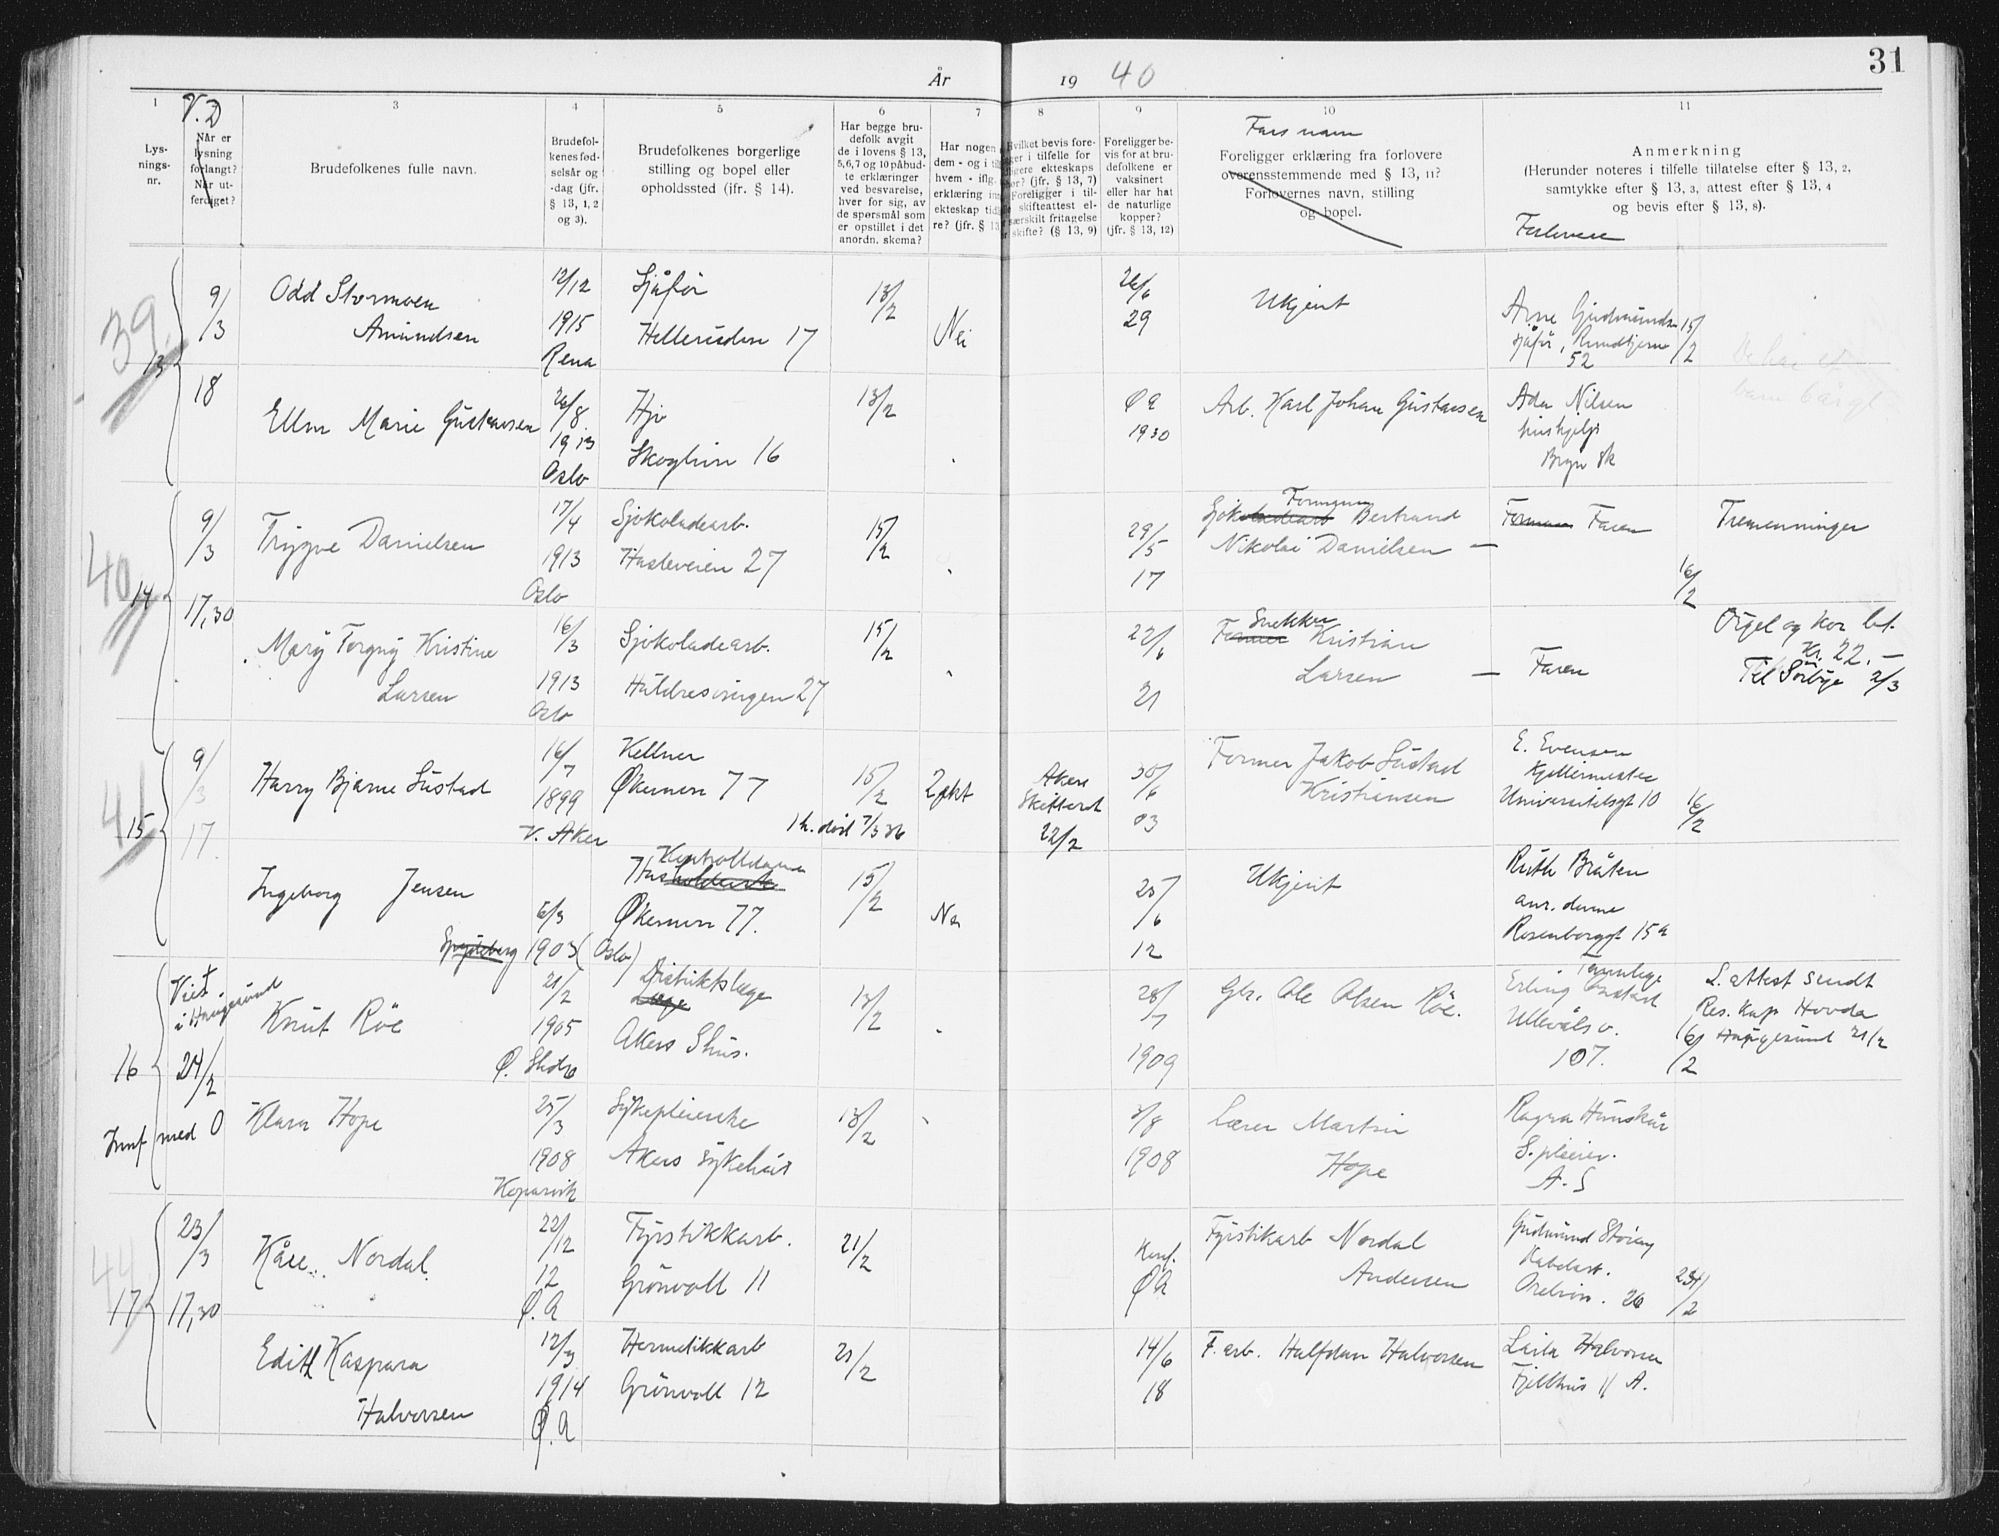 År 19 40
31
1 3 4 5 6 7 8 9 10 11
V. D
Lys-
nings-
nr.
Når er
lysning
forlangt?
Når ut-
ferdiget?
Brudefolkenes fulle navn.
Brudefol-
kenes fød-
selsår og
-dag (jfr.
§ 13, 1, 2
og 3).
Brudefolkenes borgerlige
stilling og bopel eller
opholdssted (jfr. § 14).
Har begge bru-
defolk avgit
de i lovens § 13,
5,6,7 og 10 påbud-
te erklæringer
ved besvarelse,
hver for sig, av
de spørsmål som
er opstillet i det
anordn. skema?
Har nogen
dem - og i
hvem - iflg.
erklæring in
ekteskap tid
re? (jfr. § 13
Hvilket bevis fore-
ger i tilfelle for
ligere ekteskaps
ør? (jfr. § 13, 7)
Foreligger i til-
skifteattest el-
særskilt fritagelse
skifte? (§ 13, 9)
Foreligger be-
vis for at bru-
defolkene er
vaksinert
eller har hat
de naturlige
kopper?
(jfr. § 13, 12)
Fars navn
Foreligger erklæring fra forlovere
overensstemmende med § 13, 11?
Forlovernes navn, stilling
og bopel.
Anmerkning
(Herunder noteres i tilfelle tillatelse efter § 13, 2,
samtykke efter § 13, 3, attest efter § 13, 4
og bevis efter § 13, 8).
Forlovere
39
13
9/3
18
Odd Stormoen
Amundsen
12/12
1915
Rena
Sjåfør
Hellerudvn 17
13/2
Nei
26/6
29
Ukjent
Arne Gudmunds
sjåfør,
52
15/2
De har et
barn
Ellen Marie Gustavsen
26/8
1913
Oslo
Hjv
Skoglivn 16
13/2
Ø A
1930
Arb. Karl Johan Gustavsen
Ada Nilsen
hushjelp
Bryn sk
40
14
9/3
17,30
Trygve Danielsen
17/4
1913
Oslo
Sjokoladearb.
Hasleveien 27
15/2
29/5
17
Formann
Sjokoladearb Bertrand
Nikolai Danielsen —
Formann Faren
16/2
Tremenninger
Mary Torgny Kristine
Larsen
16/3
1913
Oslo
Sjokoladearb.
Huldresvingen 27
15/2
22/6
21
Snekker
Former Kristian
Larsen —
Faren
Orgel og kor bet.
Kr. 22.—
Til Sörbye 2/3
41
15
9/3
17.
Harry Bjarne Sustad
16/7
1899
V. Aker
Kellner
Økernvn 77
1 h. död 7/3 36
15/2
2 ekt
Akers
Skifterett
22/2
30/6
03
Former Jakob Sustad
Kristiansen
E. Evensen
Kjellermester
Universitetsgt 10
16/2
Ingeborg Jensen
6/3
Spydeberg 1903 (Oslo)
Kontrolldame
Husholderske
Økernvn 77.
15/2
Nei
25/6
12
Ukjent
Ruth Bråten
anr. dame
Rosenborggt 15 a
16
Viet
i Haugesund
24/2
Knut Röe
21/2
1905
Ø. Slidre
Distriktslæge
Læge
Akers Shus.
13/2
28/7
1909
Gbr. Ole Olsen Röe.
Tannlæge
Erling Onstad
Ullevålsv.
107.
16/2
L. attest sendt
Res. kap Hovda
Haugesund 21/2
Innf med O
Klara Hope
25/3
1908
Kopervik
Sykepleierske
Akers Sykehus
13/2
3/8
1908
Lærer Martin
Hope
Ragna Hunskår
S. pleier.
A. S
44
17
23/3
17,30
Kåre Nordal
22/12
12
Ø. A
Fyrstikkarb.
Grönvoll 11
21/2
Konf.
Ø A
Fyrstikarb Nordal
Andersen
Gudmund
Kabelarb.
26
23/2
Edith Kaspara
Halvorsen
12/3
1914
Ø. A
Hermetikkarb
Grönvoll 12
21/2
14/6
18
F. arb. Halfdan Halvorsen
Laila Halvorsen
Fjellhus 11 A.